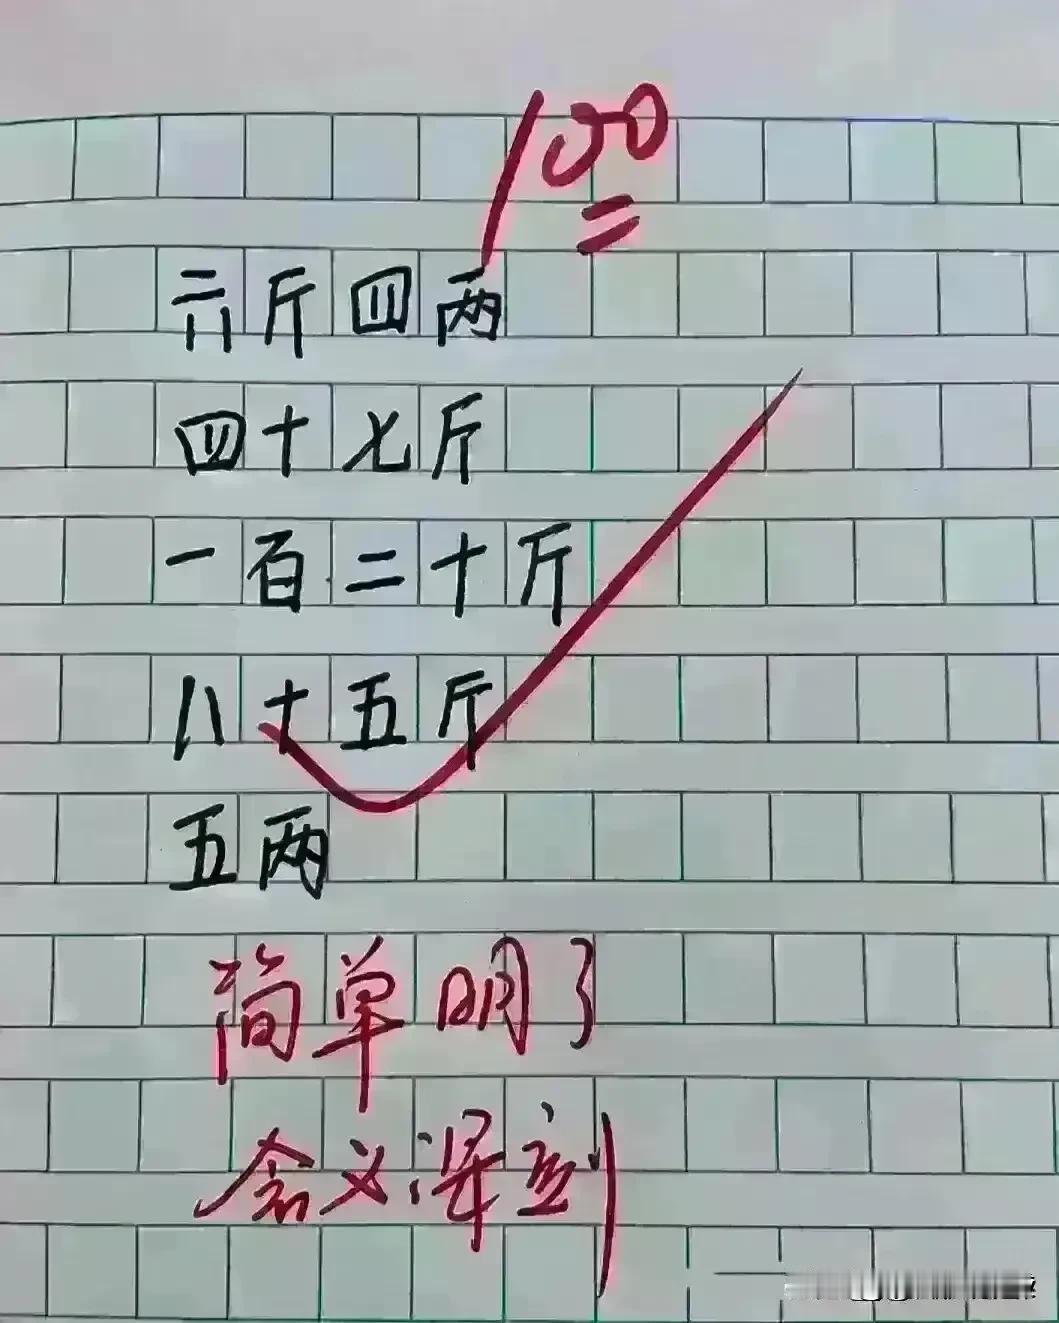 100
六斤四两
四十七斤
一百二十斤
八十五斤
五两
简单明了
含义深刻